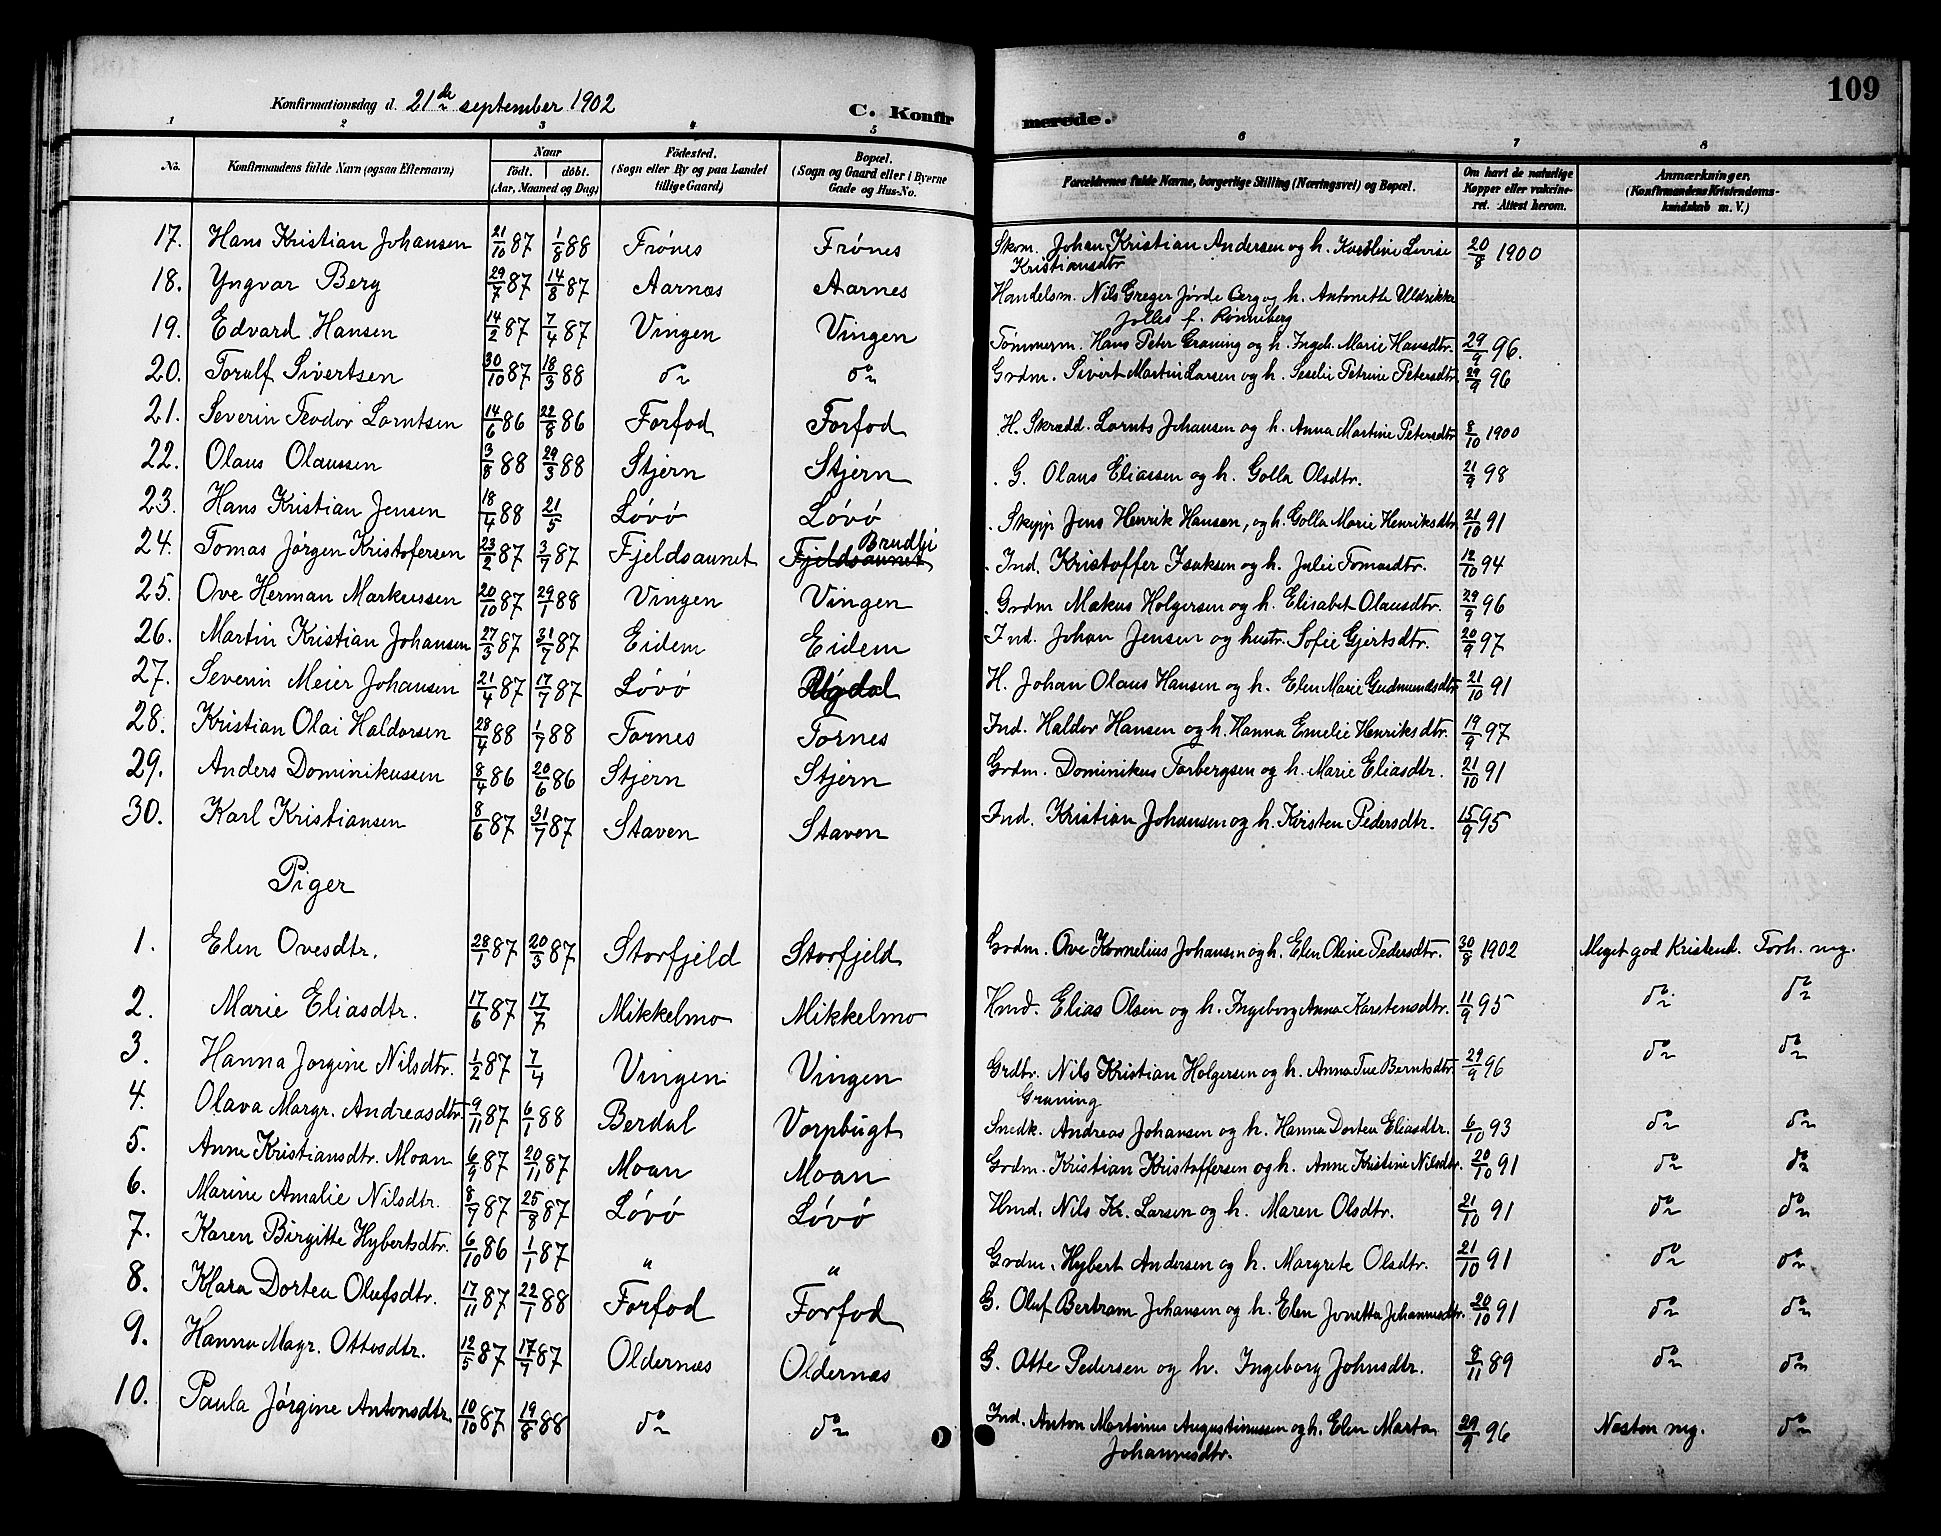 109
Konfirmationsdag d. 21de september 1902
C. Konfirmerede.
1 2 3 4 5 6 7 8
No. Konfirmandens fulde Navn (ogsaa Efternavn) Naar födt. döbt. (Aar, Maaned og Dag) Födested. (Sogn eller By og paa Landet tillige Gaard) Bopæl. (Sogn og Gaard eller i Byerne Gade og Hus-No. Forældrenes fulde Navne, borgerlige Stilling (Næringsvei) og Bopæl. Om havt de naturlige Kopper eller vakcineret. Attest herom. Anmærkninger. (Konfirmandens Kristendomskundskab m. V.)
17. Hans Kristian Johansen 21/10 87 1/8 88 Frönes Frönes Skom. Johan Kristian Andersen og h. Karoline Lovise Kristiansdtr 20/8 1900
18. Yngvar Berg 29/7 87 14/8 87 Aarnæs Aarnes Handelsm. Nils Greger Jörde Berg og h. Antonette Uldrikke Jolles f. Rönneberg
19. Edvard Hansen 14/2 87 7/4 87 Vingen Vingen Tömmerm. Hans Peter Graning og h. Ingeb. Marie Hansdtr. 29/9 96.
20. Toralf Sivertsen 30/10 87 18/3 88 do do Grdm. Sivert Martin Larsen og h. Seselie Petrine Petersdtr 29/9 96
21. Severin Teodor Larntsen 14/6 86 22/8 86 Forfod Forfod H. Skrædd. Larnts Johansen og h. Anna Martine Petersdtr 8/10 1900
22. Olaus Olaussen 3/8 88 29/3 88 Stjern Stjern G. Olaus Eliassen og h. Golla Olsdtr. 21/9 98
23. Hans Kristian Jensen 18/4 88 21/5 Lövö Lövö Skipp Jens Henrik Hansen, og h. Golla Marie Henriksdtr 21/10 91
24. Tomas Jörgen Kristofersen 23/2 87 3/7 87 Fjeldsaunet Fjeldsaunet Brudli Ind. Kristoffer Isaksen og h. Julie Tomasdtr. 12/10 94
25. Ove Herman Markussen 20/10 87 29/1 88 Vingen Vingen Grdm Makus Holgersen og h. Elisabet Olausdtr. 29/9 96
26. Martin Kristian Johansen 27/3 87 31/7 87 Eidem Eidem Ind. Johan Jensen og hustr. Sofie Gjertsdtr. 20/9 97
27. Severin Meier Johansen 21/4 87 17/7 87 Lövö H. Johan Olaus Hansen og h. Elen Marie Gudmundsdtr 21/10 91
28. Kristian Olai Haldorsen 28/4 88 1/7 88 Tornes Tornes Ind. Haldor Hansen og h. Hanna Emelie Henriksdtr. 19/9 97
29. Anders Dominikussen 8/4 86 20/6 86 Stjern Stjern Grdm. Dominikus Torbergsen og h. Marie Eliasdtr. 21/10 91
30. Karl Kristiansen 8/6 87 31/7 87 Staven Staven Ind. Kristian Johansen og h. Kirsten Pedersdtr. 15/9 95
Piger
1. Elen Ovesdtr. 28/1 87 20/3 87 Storfjeld Storfjeld Grdm. Ove Kornelius Johansen og h. Elen Oline Pedersdtr. 30/8 1902 Meget god Kristend. Forh. mg.
2. Marie Eliasdtr. 17/6 87 17/7 Mikkelmo Mikkelmo Hmd. Elias Olsen og h. Ingeborg Anna Karstensdtr. 11/9 95 do do
3. Hanna Jorgine Nilsdtr. 1/2 87 7/4 Vingen Vingen Grdbr. Nils Kristian Holgersen og h. Anna Tue Berntsdtr Graning 29/9 96 do do
4. Olava Margr. Andreasdtr. 9/11 87 6/1 88 Berdal Vorpbugt Snedk. Andreas Johansen og h. Hanna Dortea Eliasdtr. 6/10 93 do do
5. Anne Kristiansdtr. Moan 6/9 87 20/11 87 Moan Moan Grdm. Kristian Kristoffersen og h. Anne Kristine Nilsdtr. 20/10 91 do do
6. Marine Amalie Nilsdtr. 8/7 87 25/8 87 Lövö Lövö Hmd. Nils Kr. Larsen og h. Maren Olsdtr. 21/10 91 do do
7. Karen Birgitte Hybertsdtr. 6/10 86 1/1 87 " " Grdm. Hybert Andersen og h. Margrete Olsdtr. 21/10 91 do do
8. Klara Dortea Olufsdtr. 17/11 87 22/1 88 Forfod Forfod G. Oluf Bertram Johansen og h. Elen Jonetta Johannesdtr. 20/10 91 do do
9. Hanna Magr. Ottesdtr. 12/5 87 17/7 87 Oldernæs Oldernæs G. Otte Pedersen og h. Ingeborg Johnsdtr. 8/11 89 do do
10. Paula Jörgine Antonsdtr. 10/10 87 19/8 88 do do Ind. Anton Martinus Augustinussen og h. Elen Marta Johannesdtr. 29/9 96 Næsten mg. do